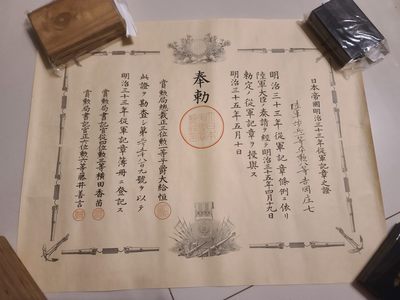 日本帝國明治三十三年從軍記章之證
陸軍歩兵一等卒勲八等
明治三十三年從軍記章條例ニ依リ
陸軍大臣ノ奏請ヲ經テ明治三十五年四月十九日
勅定ノ從軍記章ヲ授與ス
明治三十五年五月十日
奉勅
賞勲局總裁正三位勲一等子爵大給恒
此證ヲ勘査シ第 九號ヲ以テ
明治三十三年從軍記章簿冊ニ登記ス
賞勲局書記官從四位勲三等横田香苗
賞勲局書記官正六位勲六等藤井善言